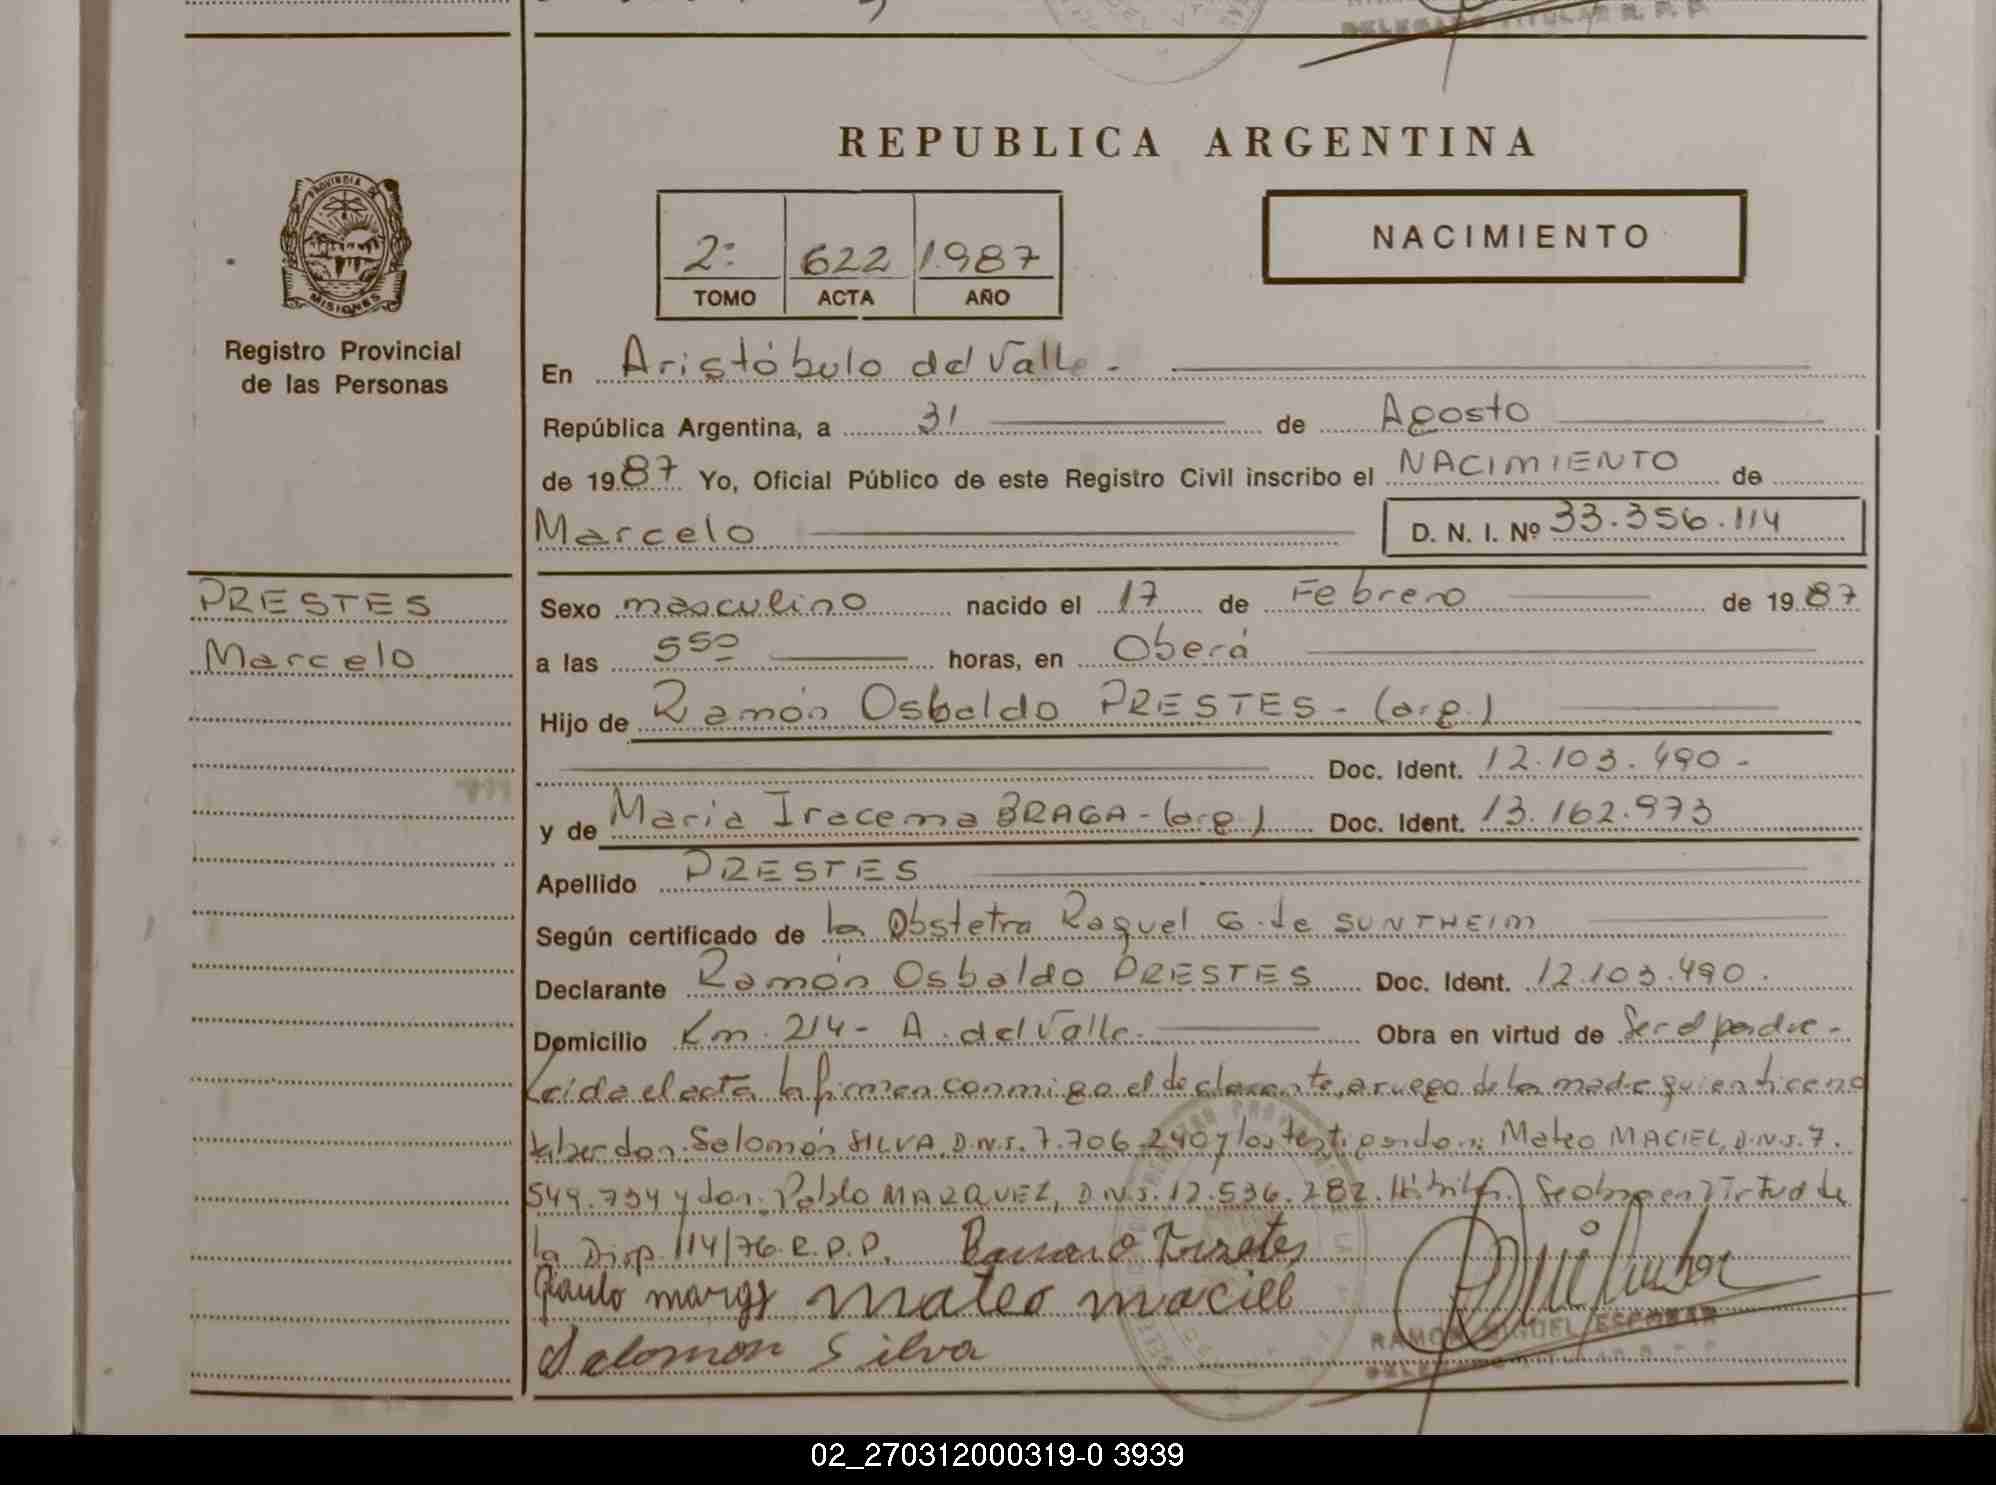 REPUBLICA ARGENTINA
PROVINCIA DE
MISIONES
Registro Provincial
de las Personas
2º 622 1.987
TOMO ACTA AÑO
NACIMIENTO
En Aristóbulo del Valle.
República Argentina, a 31 de Agosto
de 1987 Yo, Oficial Público de este Registro Civil inscribo el NACIMIENTO de
Marcelo D. N. I. Nº 33.356.114
PRESTES
Marcelo
Sexo masculino nacido el 17 de Febrero de 1987
a las 5⁵⁰ horas, en Oberá
Hijo de Ramón Osbaldo PRESTES - (arg.)
Doc. Ident. 12.103.490-
y de Maria Iracema BRAGA - (arg.) Doc. Ident. 13.162.973
Apellido PRESTES
Según certificado de la Obstetra Raquel G. de SUNTHEIM
Declarante Ramón Osbaldo PRESTES Doc. Ident. 12.103.490.
Domicilio Km. 214- A. del Valle. Obra en virtud de Ser el padre.
Leida el acta la firman conmigo el declarante, a ruego de la madre quien dice no
saber don: Salomón SILVA, D.N.I. 7.706.240 y los testigos don: Mateo MACIEL, D.N.I. 7.
549.734 y don: Pablo MARQUEZ, D.N.I. 12.536.282. Hábiles. Se obra en virtud de
la Disp. 114/76 R.P.P.
mateo maciel
Salomon Silva
RAMON MIGUEL ESCOBAR
DELEGADO TITULAR R. P. P.
02_270312000319-0 3939